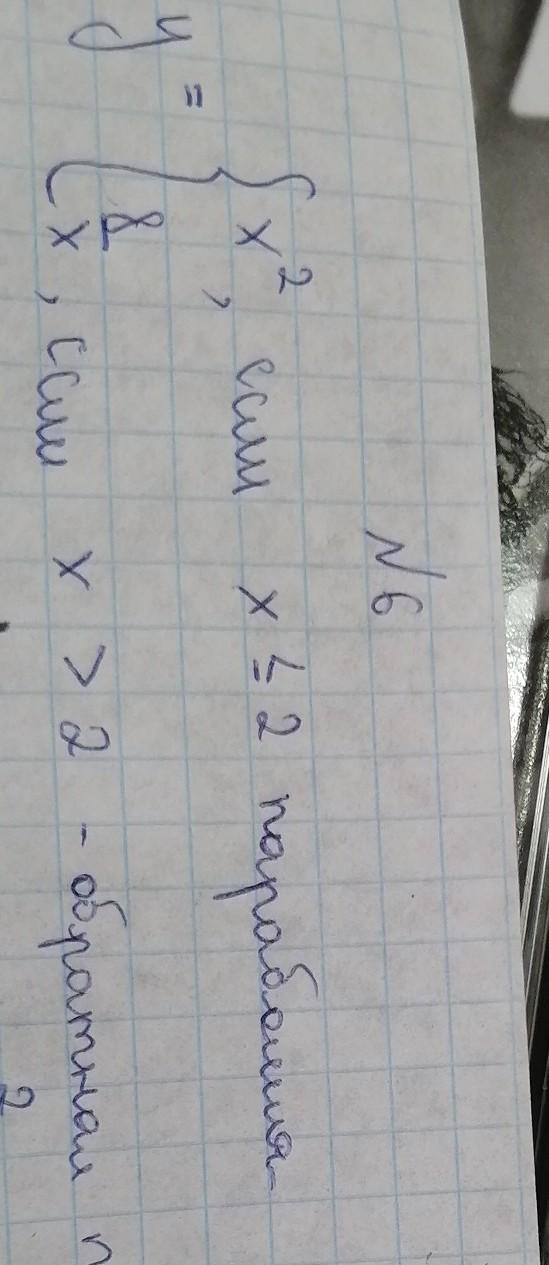 №6
y = { x², если x ≤ 2 парабола-
8/x, если x > 2 - обратная п
2